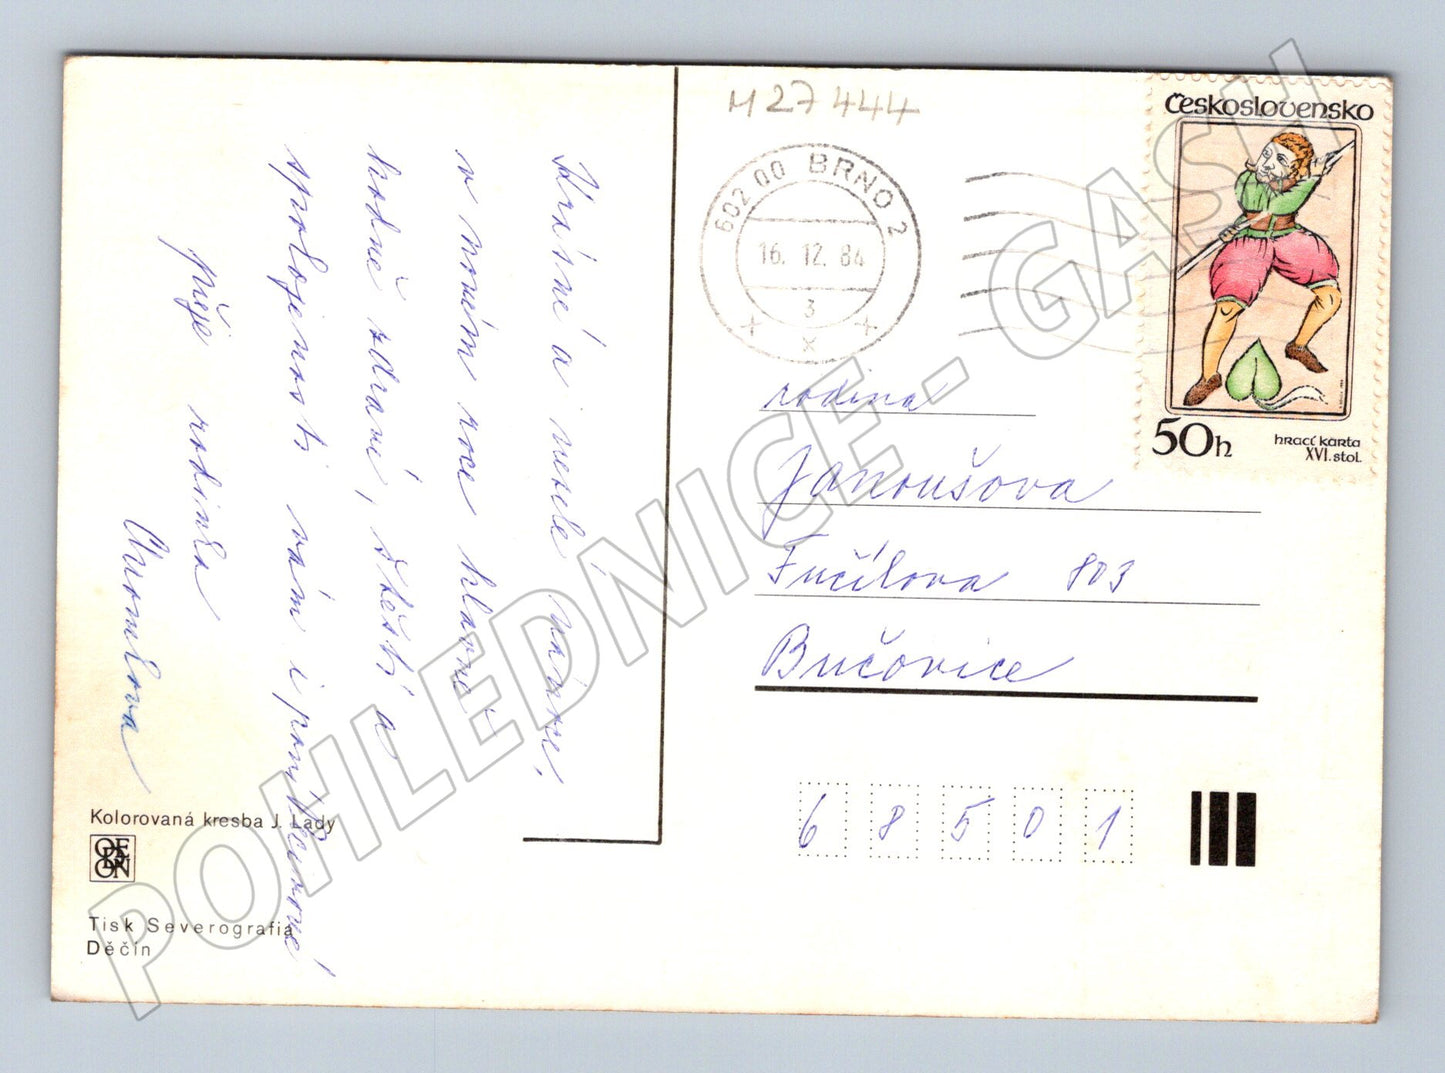 M27444
602 00 BRNO 2
16. 12. 84
3
x
Československo
50h
hrací karta
XVI. stol.
rodina
Janoušova
Fučílova 803
Bučovice
68501
Krásné a veselé vánoce,
v novém roce hlavně
hodně zdraví, štěstí a
spokojenosti vám i paní
přeje rodinka
Kolorovaná kresba J. Lady
ODEON
Tisk Severografia
Děčín
POHLEDNICE - GASH